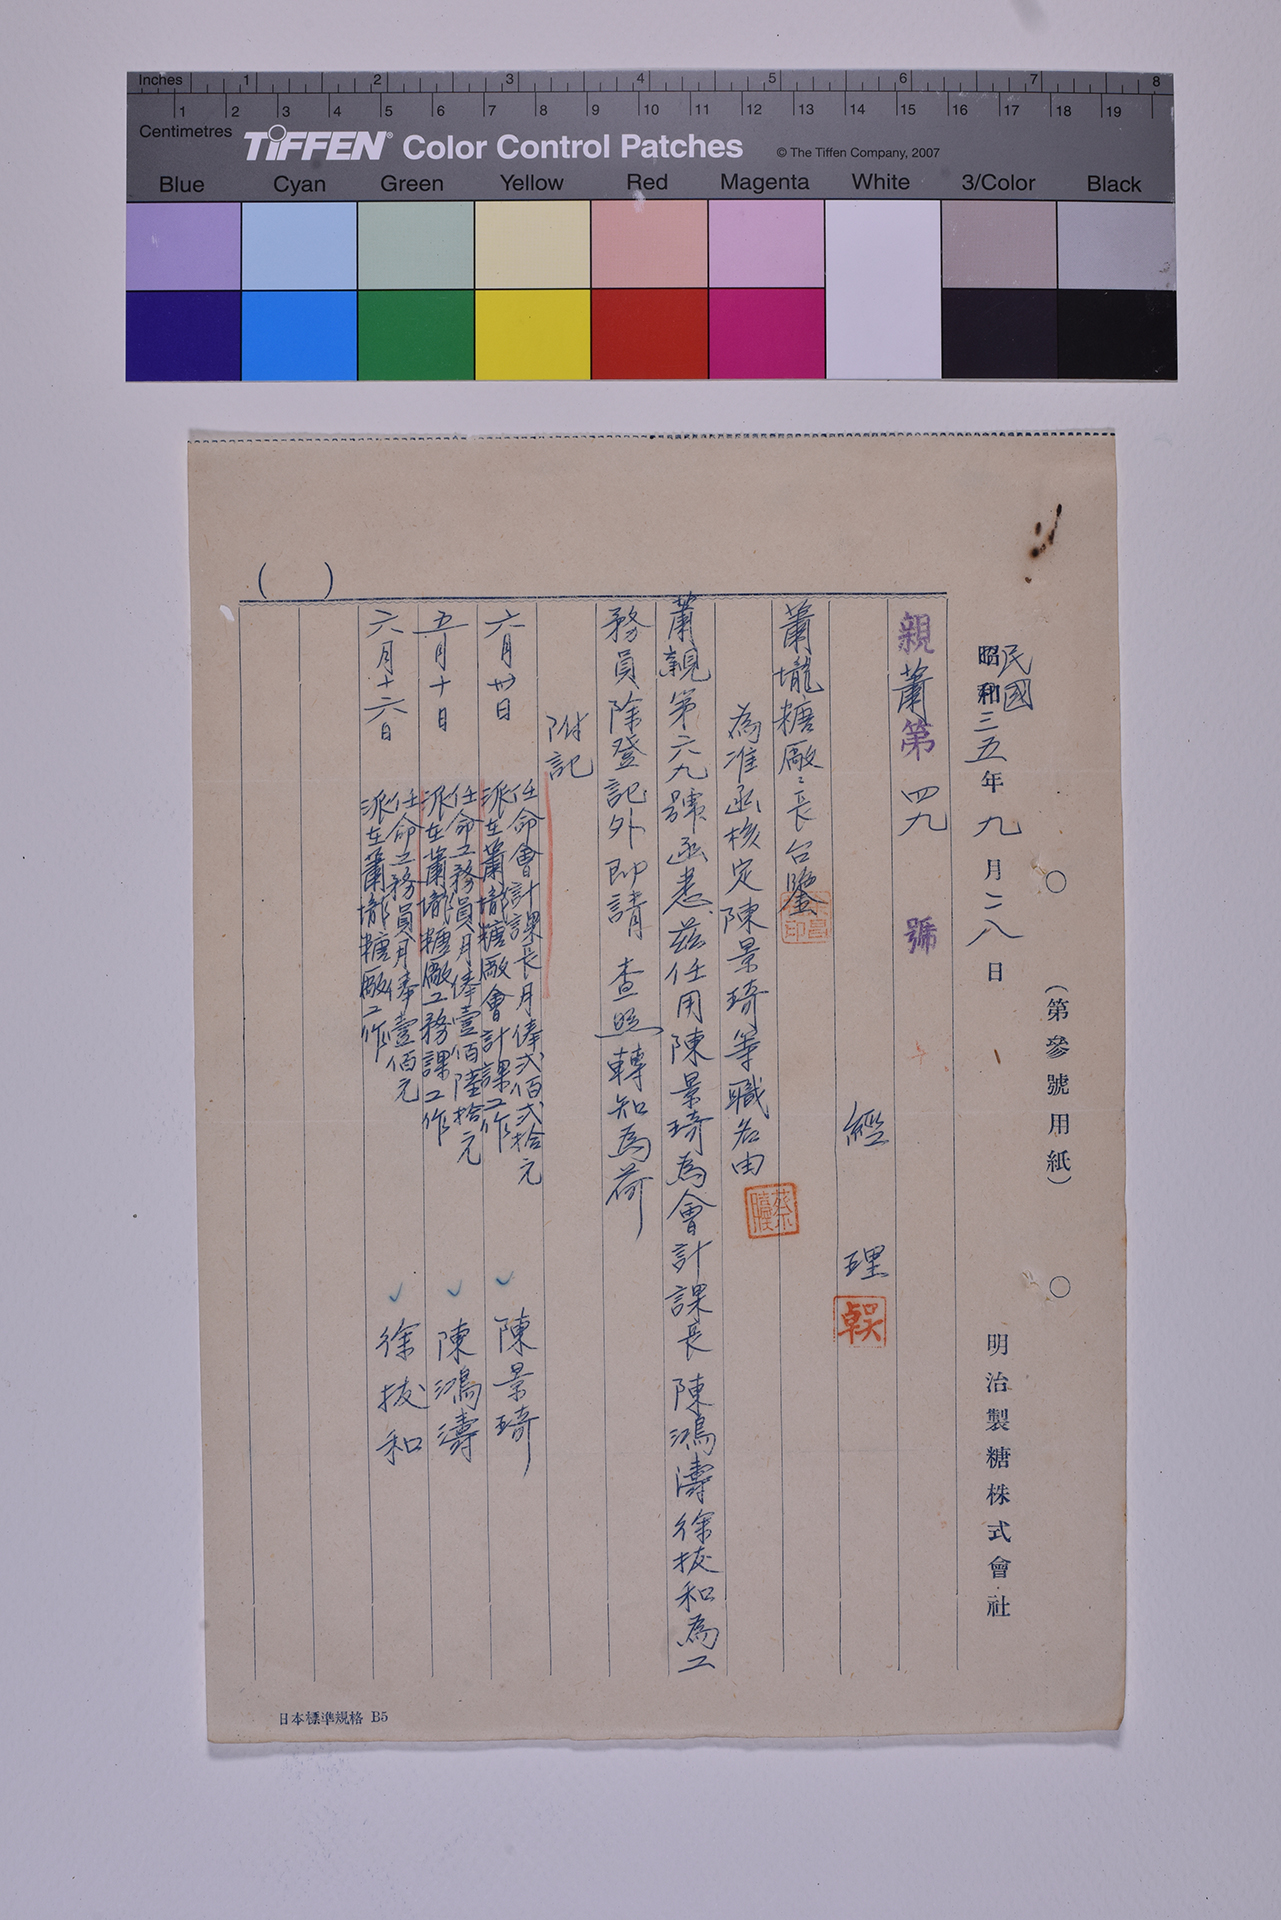 Inches 1 2 3 4 5 6 7 8
1 2 3 4 5 6 7 8 9 10 11 12 13 14 15 16 17 18 19
Centimetres
TIFFEN® Color Control Patches © The Tiffen Company, 2007
Blue Cyan Green Yellow Red Magenta White 3/Color Black
(第參號用紙)
民國
昭和三五年九月二八日
明治製糖株式會社
親蕭第四九號
經理
蕭壠糖廠〻長台鑒
為准函核定陳景琦等職名由
蕭親第六九號函悉茲任用陳景琦為會計課長陳鴻濤徐拔和為工
務員除登記外即請查照轉知為荷
附記
六月廿日
任命會計課長月俸弍佰弍拾元
派在蕭壠糖廠會計課工作
陳景琦
五月十日
任命工務員月俸壹佰陸拾元
派在蕭壠糖廠工務課工作
陳鴻濤
六月十六日
任命工務員月俸壹佰元
派在蕭壠糖廠工作
徐拔和
( )
日本標準規格 B5